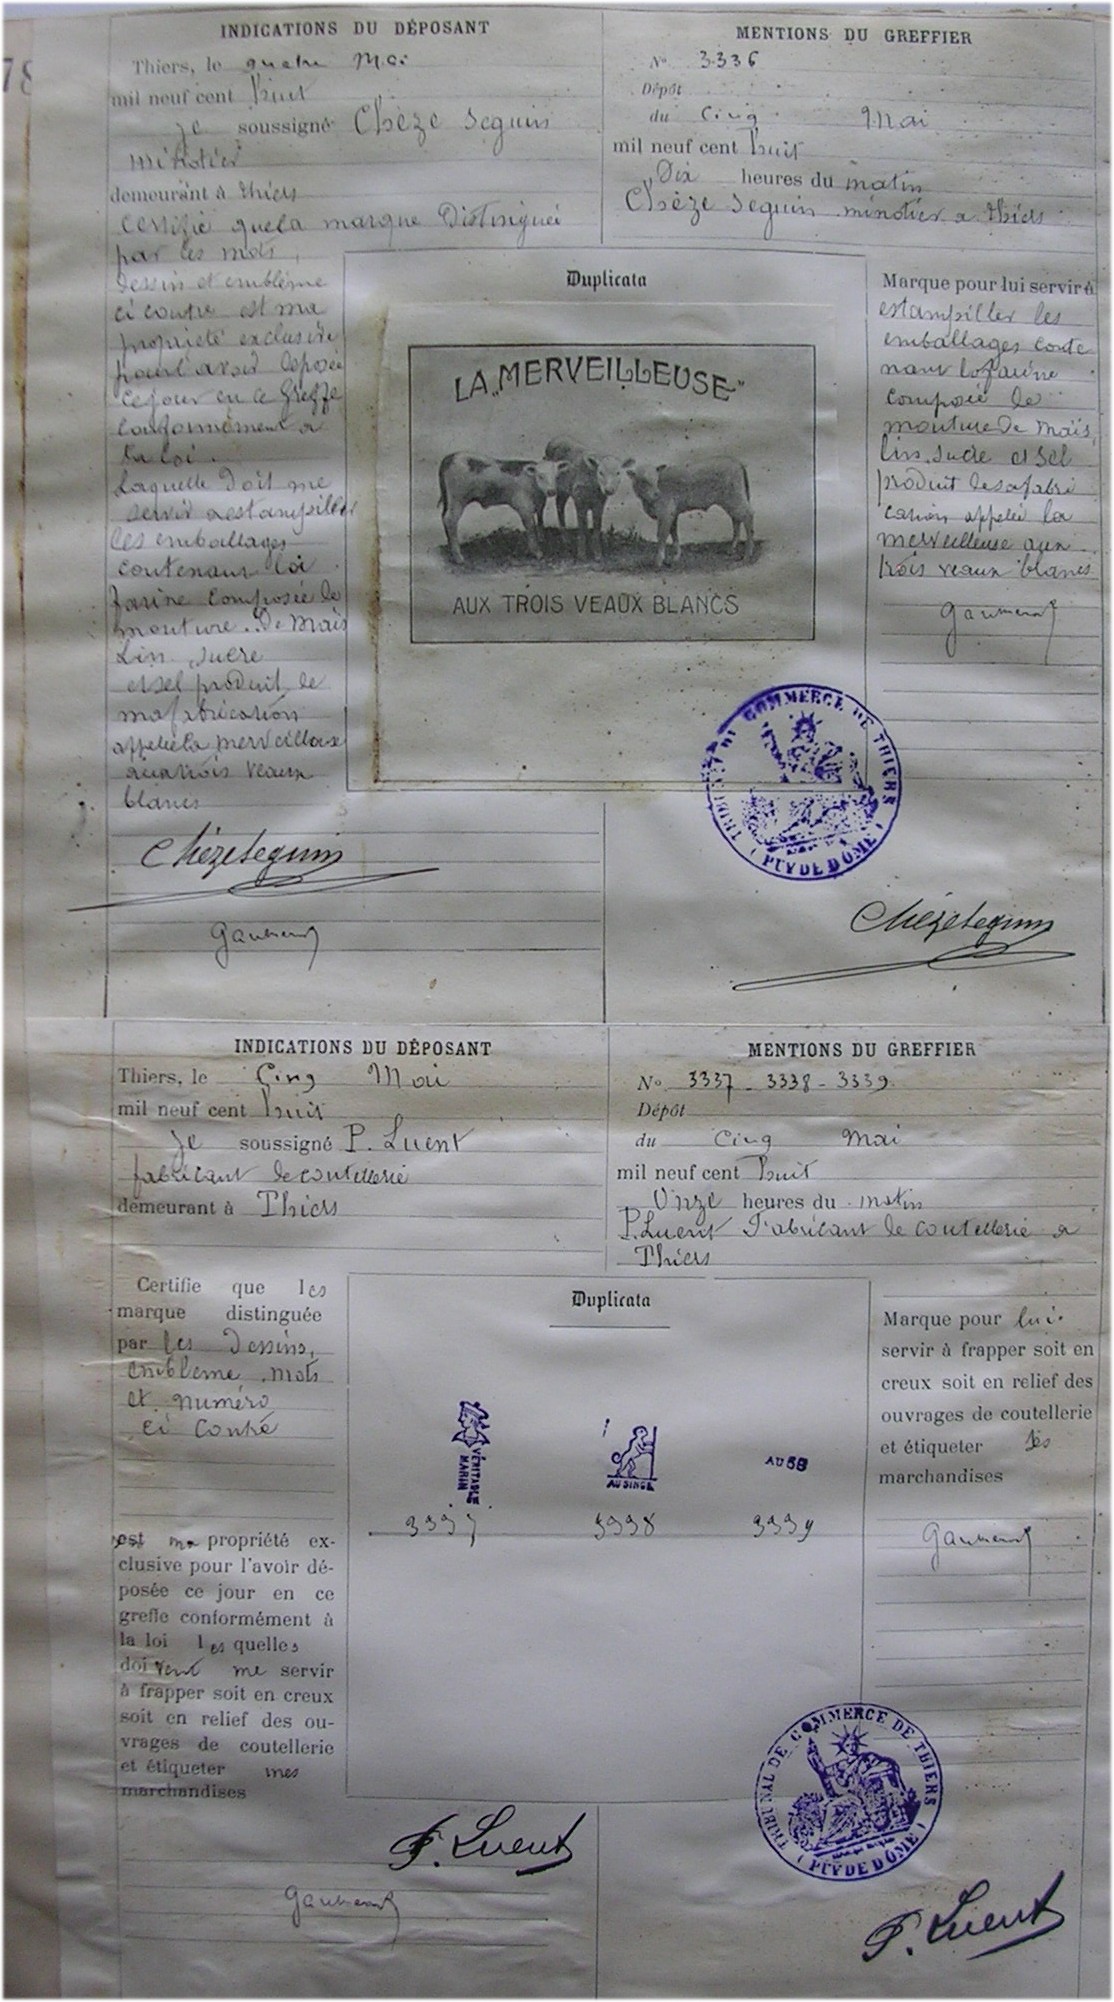 78
INDICATIONS DU DÉPOSANT
Thiers, le quatre Mai
mil neuf cent huit
je soussigné Chèze Seguin
minotier
demeurant à thiers
certifie que la marque Distinguée
par les mots,
dessin et emblème
ci contre est ma
propriété exclusive
pour l'avoir déposée
ce jour en ce Greffe
conformément a
la loi.
Laquelle doit me
servir a estampiller
les emballages
contenant la
farine composée de
mouture. De Maïs
Lin, sucre
et sel produit de
ma fabrication
appelée la merveilleuse
aux trois veaux
blancs
Chèze Seguin
MENTIONS DU GREFFIER
No 3336
Dépôt
du Cinq Mai
mil neuf cent huit
Dix heures du matin
Chèze Seguin minotier a thiers
Duplicata
LA „MERVEILLEUSE"
AUX TROIS VEAUX BLANCS
Marque pour lui servir à
estampiller les
emballages conte
nant la farine
composée de
mouture De maïs,
lin, sucre et sel
produit de sa fabri
cation appelée la
merveilleuse aux
trois veaux blancs
TRIBUNAL DE COMMERCE DE THIERS
( PUY DE DÔME )
Chèze Seguin
INDICATIONS DU DÉPOSANT
Thiers, le Cinq Mai
mil neuf cent huit
je soussigné P. Luent
fabricant de coutellerie
demeurant à Thiers
MENTIONS DU GREFFIER
No 3337 - 3338 - 3339
Dépôt
du Cinq Mai
mil neuf cent huit
Onze heures du matin
P. Luent Fabricant de coutellerie a
Thiers
Certifie que les
marque distinguée
par les dessins,
emblème, mots
et numéro
ci contre
est ma propriété ex-
clusive pour l'avoir dé-
posée ce jour en ce
greffe conformément à
la loi lesquelles
doivent me servir
à frapper soit en creux
soit en relief des ou-
vrages de coutellerie
et étiqueter mes
marchandises
Duplicata
VÉRITABLE
MARIN
AU SINGE
AU 58
3337 3338 3339
Marque pour lui
servir à frapper soit en
creux soit en relief des
ouvrages de coutellerie
et étiqueter ses
marchandises
TRIBUNAL DE COMMERCE DE THIERS
( PUY DE DÔME )
P. Luent
P. Luent